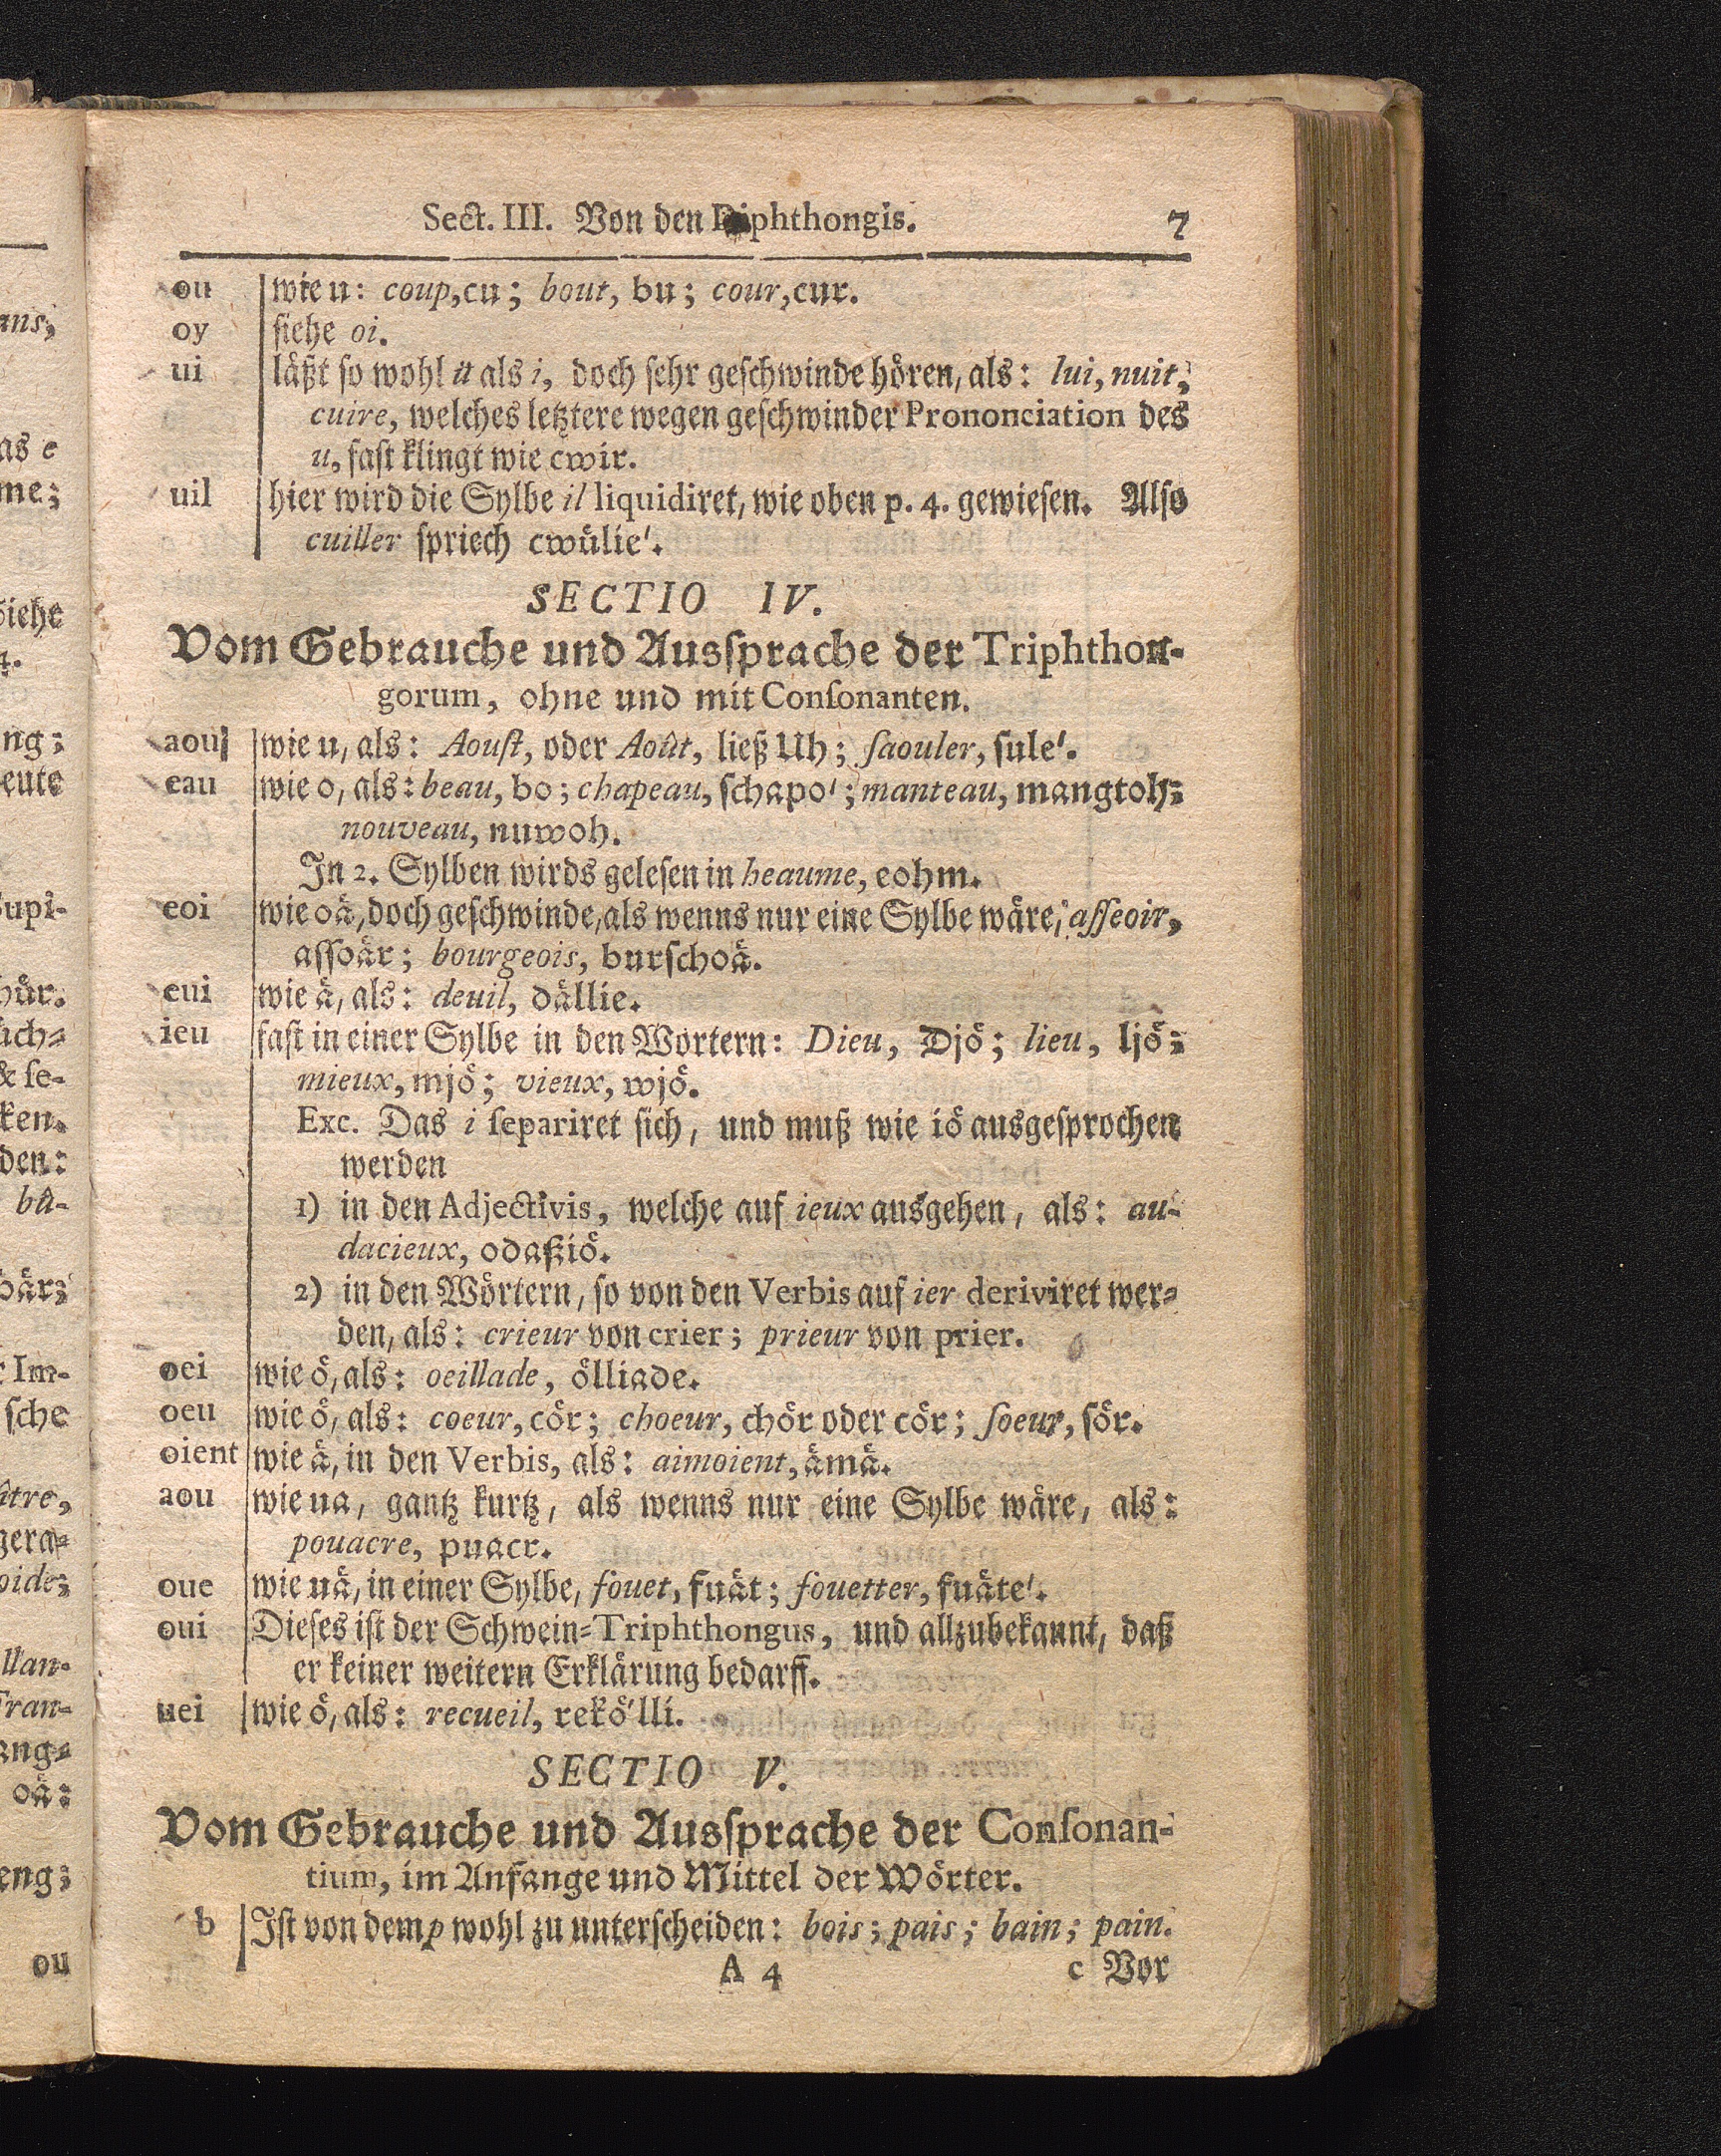 ans,
as e
me;
Siehe
4.
ng;
eute
Supi-
hůr.
& ſe-
ken.
den:
bû-
bår;
r Im-
ſche
ître,
gera-
oide;
llan-
Fran-
ang-
oå:
eng;
ou
Sect. III. Von den Diphthongis. 7
ou wie u: coup, cu; bout, bu; cour, cur.
oy ſiehe oi.
ui låßt ſo wohl ü als i, doch ſehr geſchwinde hören, als: lui, nuit,
cuire, welches letztere wegen geſchwinder Prononciation des
u, faſt klingt wie cwir.
uil hier wird die Sylbe il liquidiret, wie oben p. 4. gewieſen. Alſo
cuiller ſpriech cwůlie'.
SECTIO IV.
Vom Gebrauche und Ausſprache der Triphthon-
gorum, ohne und mit Conſonanten.
aou wie u, als: Aouſt, oder Août, ließ Uh; ſaouler, ſule'.
eau wie o, als: beau, bo; chapeau, ſchapo'; manteau, mangtoh;
nouveau, nuwoh.
In 2. Sylben wirds geleſen in heaume, eohm.
eoi wie oå, doch geſchwinde, als wenns nur eine Sylbe wåre, aſſeoir,
aſſoår; bourgeois, burſchoå.
eui wie å, als: deuil, dållie.
ieu faſt in einer Sylbe in den Wortern: Dieu, Djö; lieu, ljö;
mieux, mjö; vieux, wjö.
Exc. Das i ſepariret ſich, und muß wie iö ausgeſprochen
werden
1) in den Adjectivis, welche auf ieux ausgehen, als: au-
dacieux, odaßiö.
2) in den Wörtern, ſo von den Verbis auf ier deriviret wer-
den, als: crieur von crier; prieur von prier.
oei wie ö, als: oeillade, ölliade.
oeu wie ö, als: coeur, cör; choeur, chör oder cör; ſoeur, ſör.
oient wie å, in den Verbis, als: aimoient, åmå.
aou wie ua, gantz kurtz, als wenns nur eine Sylbe wåre, als:
pouacre, puacr.
oue wie uå, in einer Sylbe, fouet, fuåt; fouetter, fuåte'.
oui Dieſes iſt der Schwein-Triphthongus, und allzubekannt, daß
er keiner weitern Erklårung bedarff.
uei wie ö, als: recueil, rekö'lli.
SECTIO V.
Vom Gebrauche und Ausſprache der Conſonan-
tium, im Anfange und Mittel der Wörter.
b Iſt von dem p wohl zu unterſcheiden: bois; pais; bain; pain.
A 4 c Vor